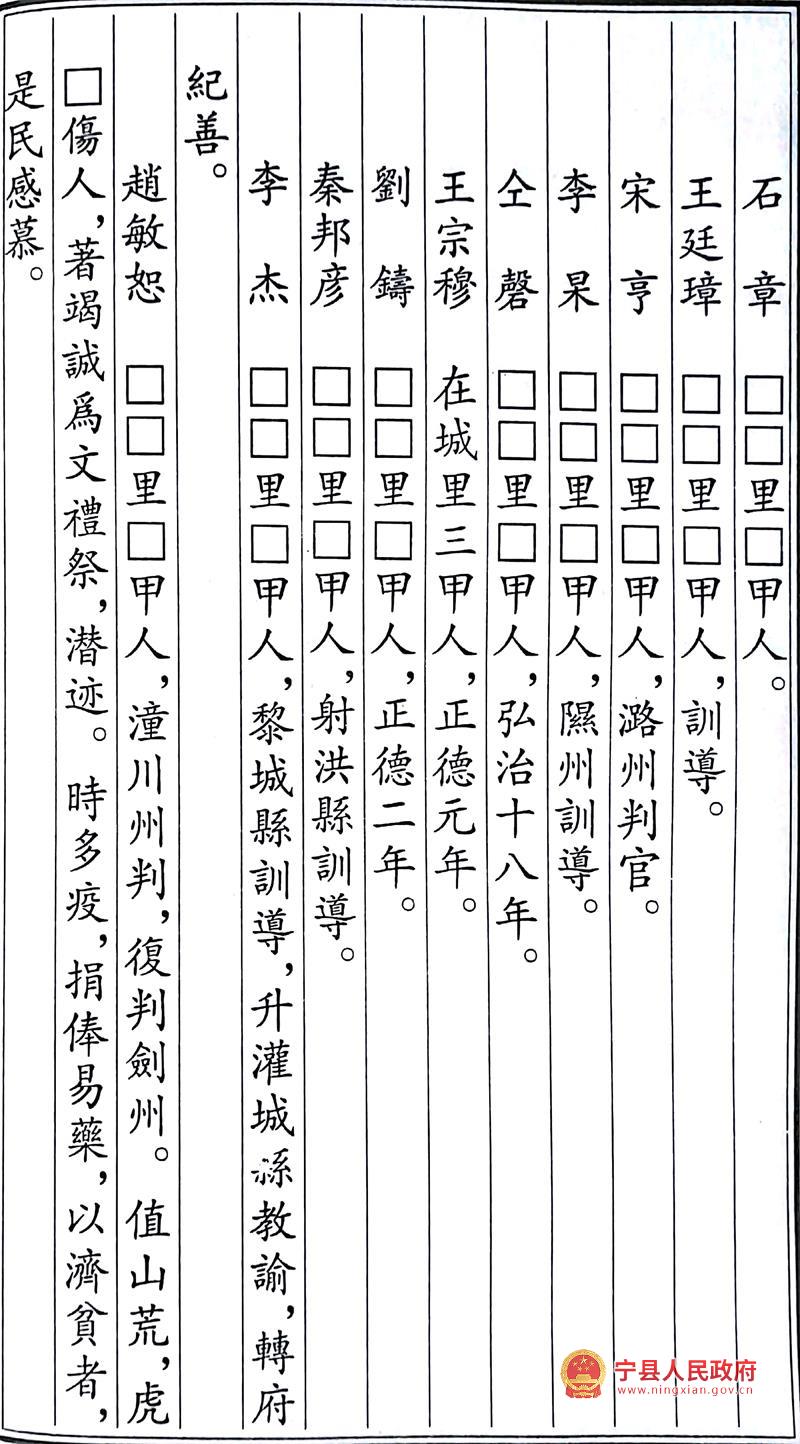 石　章　□□里□甲人。
王廷璋　□□里□甲人，訓導。
宋　亨　□□里□甲人，潞州判官。
李　杲　□□里□甲人，隰州訓導。
仝　磬　□□里□甲人，弘治十八年。
王宗穆　在城里三甲人，正德元年。
劉　鑄　□□里□甲人，正德二年。
秦邦彦　□□里□甲人，射洪縣訓導。
李　杰　□□里□甲人，黎城縣訓導，升灌城縣教諭，轉府
紀善。
趙敏恕　□□里□甲人，潼川州判，復判劍州。值山荒，虎
□傷人，著竭誠爲文禮祭，潜迹。時多疫，捐俸易藥，以濟貧者，
是民感慕。
宁县人民政府
www.ningxian.gov.cn